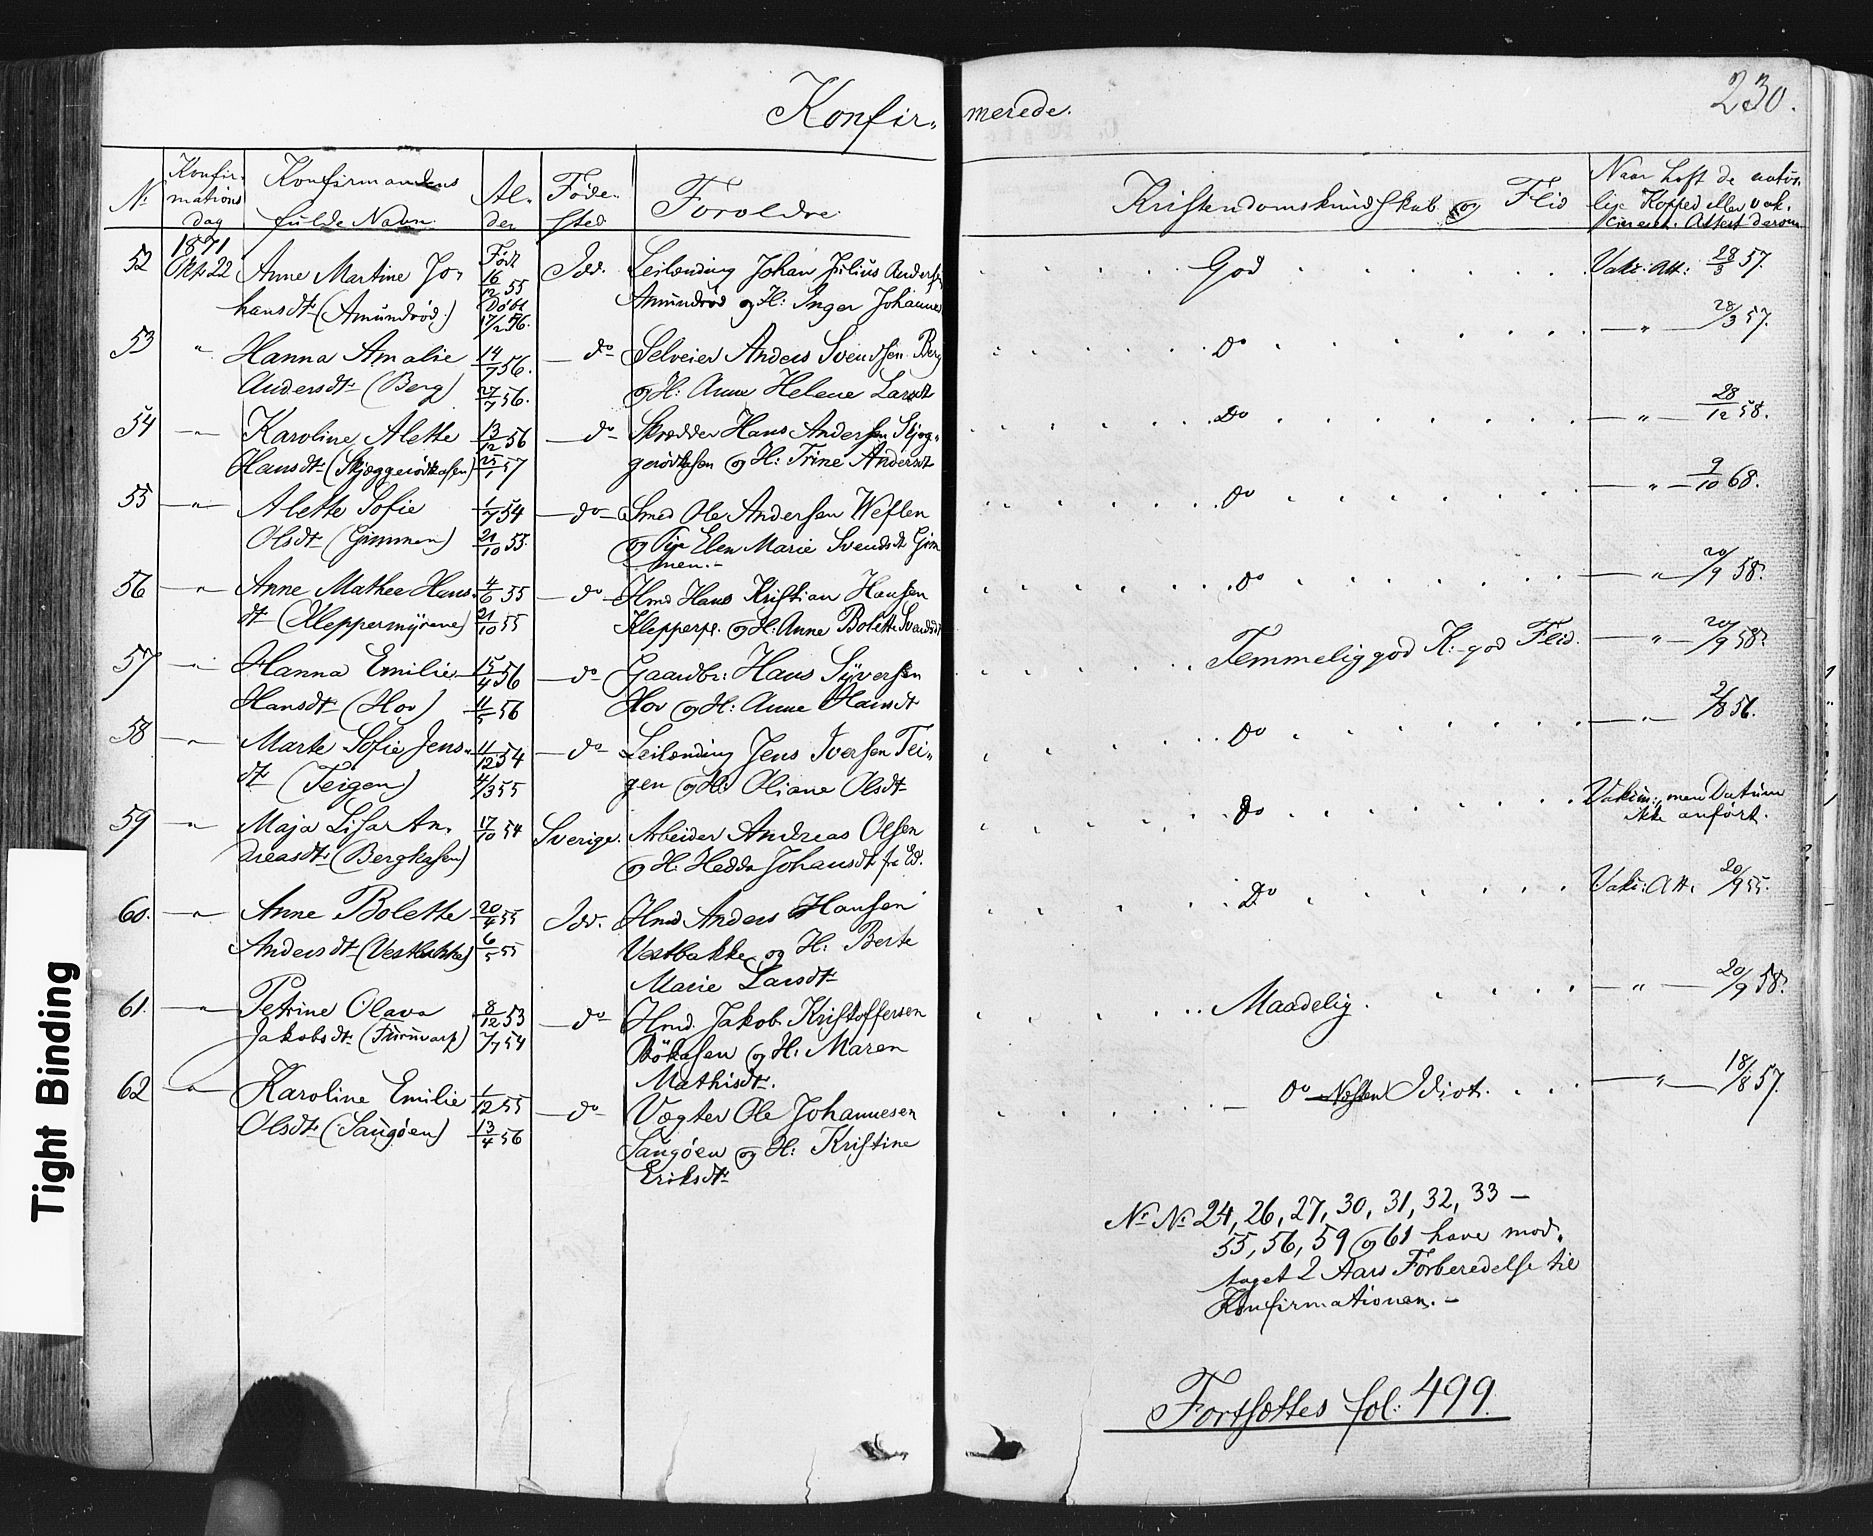 230.
Konfir- merede.
N: Konfir- mations dag Konfirmandens fulde Navn. Al- der Føde- sted Foreldre. Kristendomskundskab og Flid Naar haft de natur- lige Kopper eller vak- cineret. Attest derom
52 1871 Okt. 22 Anne Martine Jo- Født 16/12 55 Idd. Leilænding Johan Julius Andersen God Vaks: Att: 28/3 57.
hansdt (Amundrød) Døbt 17/2 56. Amundrød og H: Inger Johanne
53 " Hanna Amalie 14/7 56. do Selveier Anders Svendsen Berg Do " 28/3 57.
Andersdt (Berg) 27/7 56. og H: Anne Helene Larsdt
54 " Karoline Alette 13/12 56 do Skrædder Hans Andersen Skjæg- Do " 28/12 58.
Hansdt (Skjæggerødkasen) 25/1 57 gerødkasen og H: Trine Andersdt
55 " Alette Sofie 1/7 54 do Smed Ole Andersen Weflen Do " 9/10 68.
Olsdt (Gimmen) 21/10 55. og Pige Elen Marie Svendsdt Gim
men.-
56 " Anne Mathea Hans- 4/6 55 do Hmd Hans Kristian Hansen Do " 20/9 58.
dt (Kleppermyrene) 21/10 55 Klepperp. og H: Anne Bolette Svendsdt
57 " Hanna Emilie 15/4 56 do Gaardbr: Hans Syversen Temmelig god K:- god Flid. " 20/9 58.
Hansdt (Hov) 11/5 56 Hov og H: Anne Hansdt
58 " Marte Sofie Jens- 11/12 54 do Leilænding Jens Iversen Tei- Do " 2/8 56.
dt (Teigen) 4/3 55 gen og H: Oliane Olsdt
59 " Maja Lisa An- 17/10 54 Sverige. Arbeider Andreas Olsen Do Vakcin:, men Datum
dreasdt: (Bergkasen) og H: Hedda Johansdt fra Ed. ikke anført.
60. " Anne Bolette 20/4 55 Idd. Hmd Anders Hansen Do Vaks: Att. 20/9 55.
Andersdt (Vestbakke) 6/5 55 Vestbakke og H: Berte
Marie Larsdt
61. " Petrine Olava 8/12 53 do Hmd. Jakob Kristoffersen Maadelig. " 20/9 58.
Jakobsdt. (Furuvarp) 7/7 54 Bøkasen og H: Maren
Mathisdt.
62 " Karoline Emilie 1/12 55 do Vægter Ole Johannesen Do Næsten Idiot. " 18/8 57.
Olsdt (Saugøen) 13/4 56 Saugøen og H: Kristine
Eriksdt
N: N: 24, 26, 27, 30, 31, 32, 33 -
55, 56, 59 og 61 have mod-
taget 2 Aars Forberedelse til
Konfirmationen. -
Fortsættes fol: 499.
Tight Binding